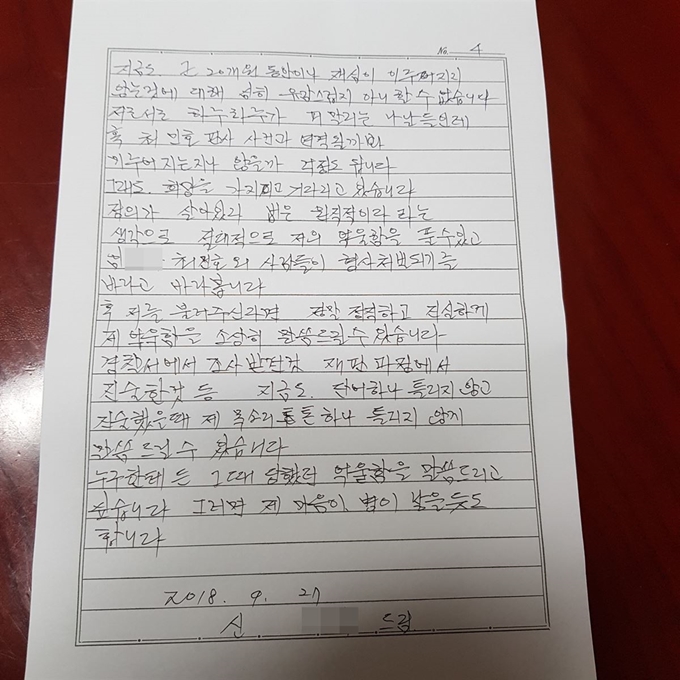 No. 4
지금도 근 20개월 동안이나 재심이 이루어지지
않는것에 대해 심히 유감스럽지 아니할수 없습니다
저로서는 하루하루가 피말리는 나날들인데
혹 최인호 판사 사건과 연격될까봐
이루어지는지나 않을까 걱정도 됩니다
그래도 희망을 가지고 기다리고 있습니다
정의가 살아있고 법은 원칙적이라 라는
생각으로 절대적으로 저의 억울함을 풀수있고
최인호외 사람들이 형사처벌되기를
바라고 바라봅니다
혹 저를 불러주신다면 정말 정직하고 진실하게
제 억울함을 소상히 말씀드릴수 있습니다
경찰서에서 조사받던것 재판과정에서
진술한것 등 지금도 단어하나 틀리지 않고
진술했을때 제 목소리 톤 하나 틀리지 않게
말씀 드릴수 있습니다
누구한태 든 그때 당했던 억울함을 말씀드리고
싶습니다 그러면 제 마음이 병이 낳을듯도
합니다
2018. 9. 27
신 드림